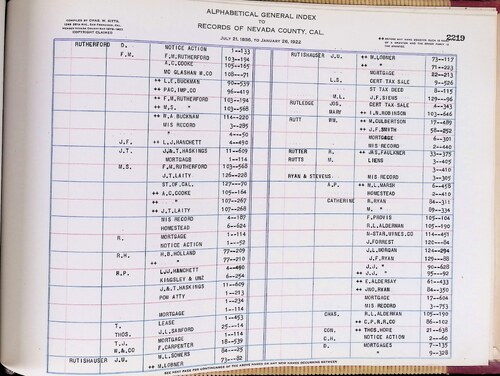 COMPILED BY CHAS. W. KITTS,
COPYRIGHT CLAIMED
ALPHABETICAL GENERAL INDEX
TO
RECORDS OF NEVADA COUNTY, CAL.
JULY 21, 1856, TO JANUARY 28, 1922
2219
RUTHERFORD D. NOTICE ACTION 1--133
F.M. F.W.RUTHERFORD 103--194
A.C.COOKE 105--165
MC GLASHAN W.CO 108---71
++ L.E.BUCKMAN 90--539
++ PAC.IMP.CO 96--419
++ F.M.RUTHERFORD 103--194
++ M.S. " 103--568
++ W.A.BUCKNAM 114--220
MIS RECORD 3--285
" 4---50
J.F. ++ L.J.HANCHETT 4--490
J.T. J.& T.HASKINGS 11--609
MORTGAGE 1--114
M.S. F.M.RUTHERFORD 103--568
J.T.LAITY 126--228
ST.OF.CAL. 127--70
++ A.C.COOKE 105--164
++ " 107--267
++ J.T.LAITY 107--268
MIS RECORD 4--187
HOMESTEAD 6--624
R. MORTGAGE 1--114
NOTICE ACTION 1---52
R.H. H.B.HOLLAND 77--209
++ " 77--210
R.P. L.J.HANCHETT 4--490
KINGSLEY & UNE 6--254
J.& T.HASKINGS 11--609
POW ATTY 1--213
" 1--234
MORTGAGE 1--114
" 1--453
T. LEASE 25---14
THOS. J.L.SANFORD 1--104
T.J. MORTGAGE 18--539
W.& CO F.CARPENTER 9--204
RUTISHAUSER J.U. M.L.SOMERS 73---82
++ M.LOBNER
RUTISHAUSER J.U. ++ M.LOBNER 73--117
++ " 71--223
MORTGAGE 22--213
L.S. CERT TAX SALE 9--526
ST TAX DEED 8--115
M.L. J.F.SIEMS 129---96
RUTLEDGE JOS. CERT TAX SALE 4--343
MARY ++ I.N.ROBINSON 103--646
RUTT WM. ++ M.CULBERTSON 17--489
++ J.F.SMITH 58--252
MORTGAGE 6--301
MIS RECORD 2--440
RUTTER R. ++ JAS.FAULKNER 33--375
RUTTS M. LIENS 3--405
" 3--410
RYAN & STEVENS MIS RECORD 3--305
A.P. ++ M.L.MARSH 6--458
HOMESTEAD 2--410
CATHERINE A.RYAN 84--311
M. " 89--334
F.PROVIS 105--104
R.L.ALDERSON 105--190
N-STAR.MINES.CO 114--451
J.FORREST 120--84
J.L.MORGAN 124--294
J.F.RYAN 129--88
J.J. " 90--628
++ J.J. " 95---92
++ E.ALDERSEY 61--433
++ JNO.RYAN 84--350
MORTGAGE 17--604
MIS RECORD 3--753
CHAS. R.L.ALDERSON 105--190
++ C.P.R.R.CO 86--102
CON. ++ THOS.HORE 21--638
C.H. NOTICE ACTION 2---60
D. MORTGAGE 7--135
" 9--328